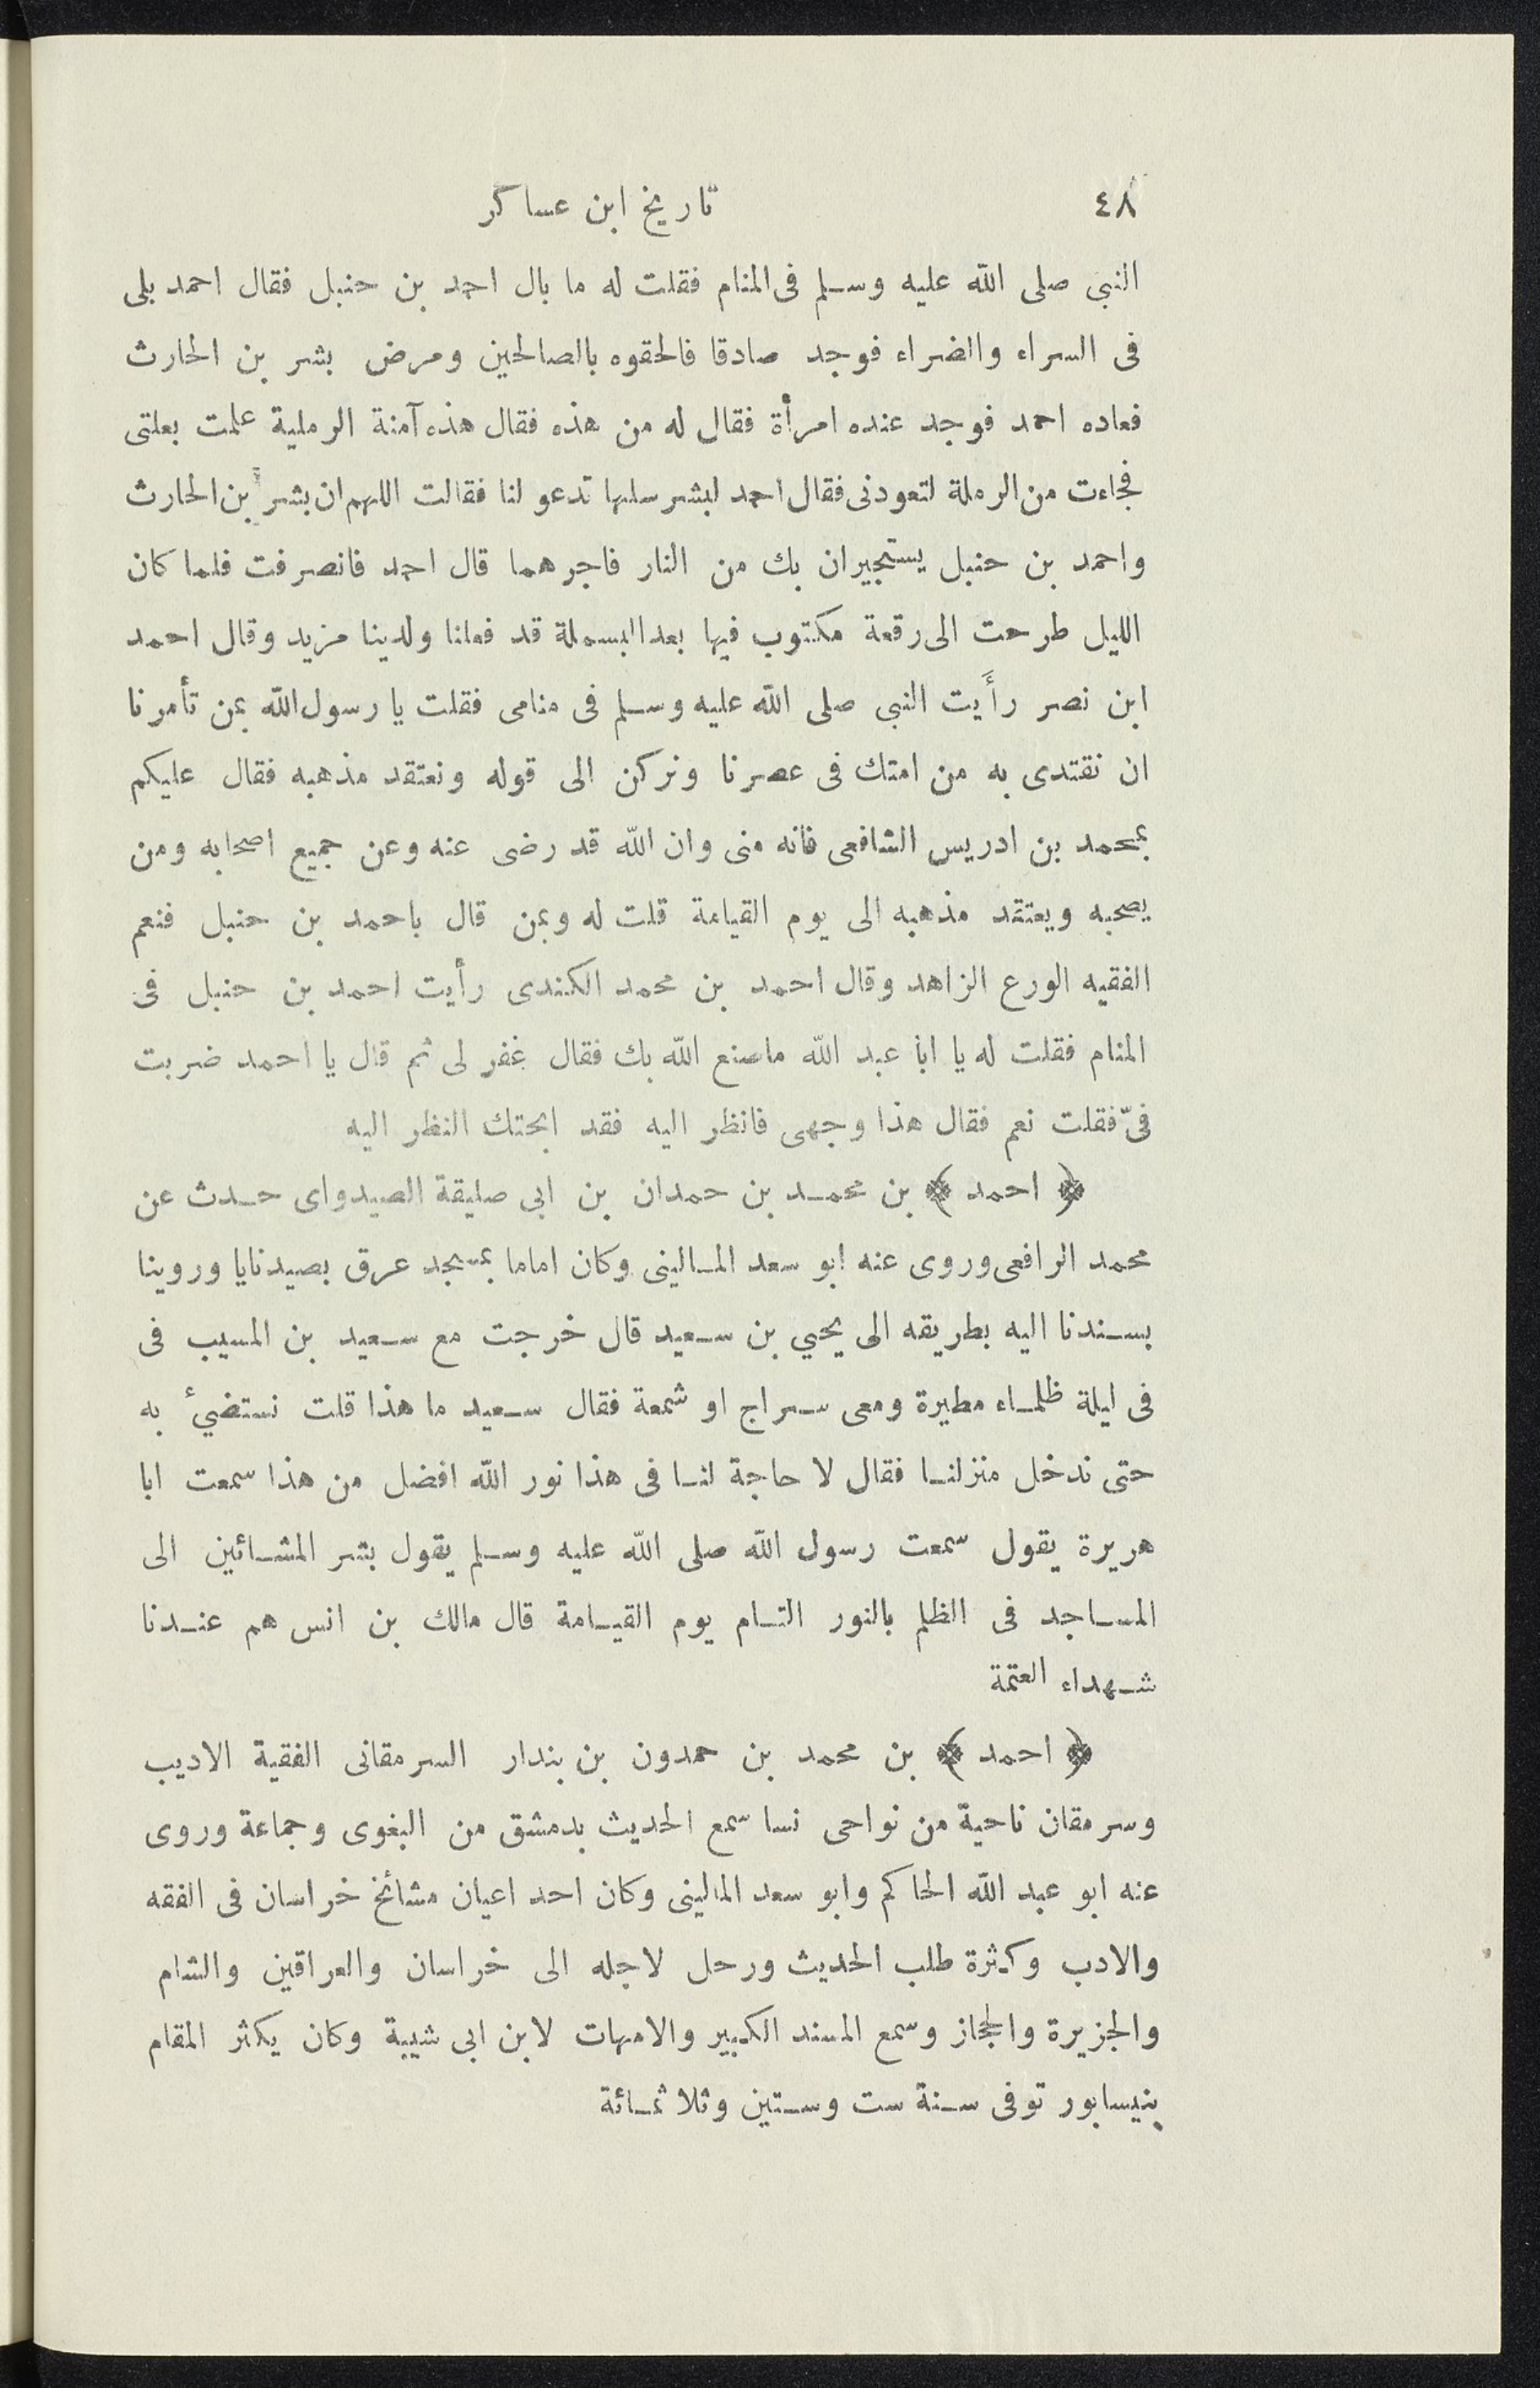 ٤٨ تاريخ ابن عساكر
النبى صلى الله عليه وسلم فى المنام فقلت له ما بال احمد بن حنبل فقال احمد بلى
فى السراء والضراء فوجد صادقا فالحقوه بالصالحين ومرض بشر بن الحارث
فعاده احمد فوجد عنده امرأة فقال له من هذه فقال هذه آمنة الرملية علمت بعلتى
فجاءت من الرملة لتعودنى فقال احمد لبشر سلها تدعو لنا فقالت اللهم ان بشراً بن الحارث
واحمد بن حنبل يستجيران بك من النار فاجرهما قال احمد فانصرفت فلما كان
الليل طرحت الى رقعة مكتوب فيها بعد البسملة قد فعلنا ولدينا مزيد وقال احمد
ابن نصر رأَيت النبى صلى الله عليه وسلم فى منامى فقلت يا رسول الله بمن تأمرنا
ان نقتدى به من امتك فى عصرنا ونركن الى قوله ونعتقد مذهبه فقال عليكم
بمحمد بن ادريس الشافعى فانه منى وان الله قد رضى عنه وعن جميع اصحابه ومن
يصحبه ويعتقد مذهبه الى يوم القيامة قلت له وبمن قال باحمد بن حنبل فنعم
الفقيه الورع الزاهد وقال احمد بن محمد الكندى رأيت احمد بن حنبل فى
المنام فقلت له يا ابا عبد الله ماصنع الله بك فقال غفر لى ثم قال يا احمد ضربت
فىّ فقلت نعم فقال هذا وجهى فانظر اليه فقد ابحتك النظر اليه
﴿ احمد ﴾ بن محمد بن حمدان بن ابى صليقة الصيدواى حدث عن
محمد الرافعى وروى عنه ابو سعد المالينى وكان اماما بمسجد عرق بصيدنايا وروينا
بسندنا اليه بطريقه الى يحيي بن سعيد قال خرجت مع سعيد بن المسيب فى
فى ليلة ظلماء مطيرة ومعى سراج او شمعة فقال سعيد ما هذا قلت نستضئ به
حتى ندخل منزلنا فقال لا حاجة لنا فى هذا نور الله افضل من هذا سمعت ابا
هريرة يقول سمعت رسول الله صلى الله عليه وسلم يقول بشر المشائين الى
المساجد فى الظلم بالنور التام يوم القيامة قال مالك بن انس هم عندنا
شهداء العتمة
﴿ احمد ﴾ بن محمد بن حمدون بن بندار السرمقانى الفقية الاديب
وسرمقان ناحية من نواحى نسا سمع الحديث بدمشق من البغوى وجماعة وروى
عنه ابو عبد الله الحاكم وابو سعد المالينى وكان احد اعيان مشائخ خراسان فى الفقه
والادب وكثرة طلب الحديث ورحل لاجله الى خراسان والعراقين والشام
والجزيرة والحجاز وسمع المسند الكبير والامهات لابن ابى شيبة وكان يكثر المقام
بنيسابور توفى سنة ست وستين وثلاثمائة